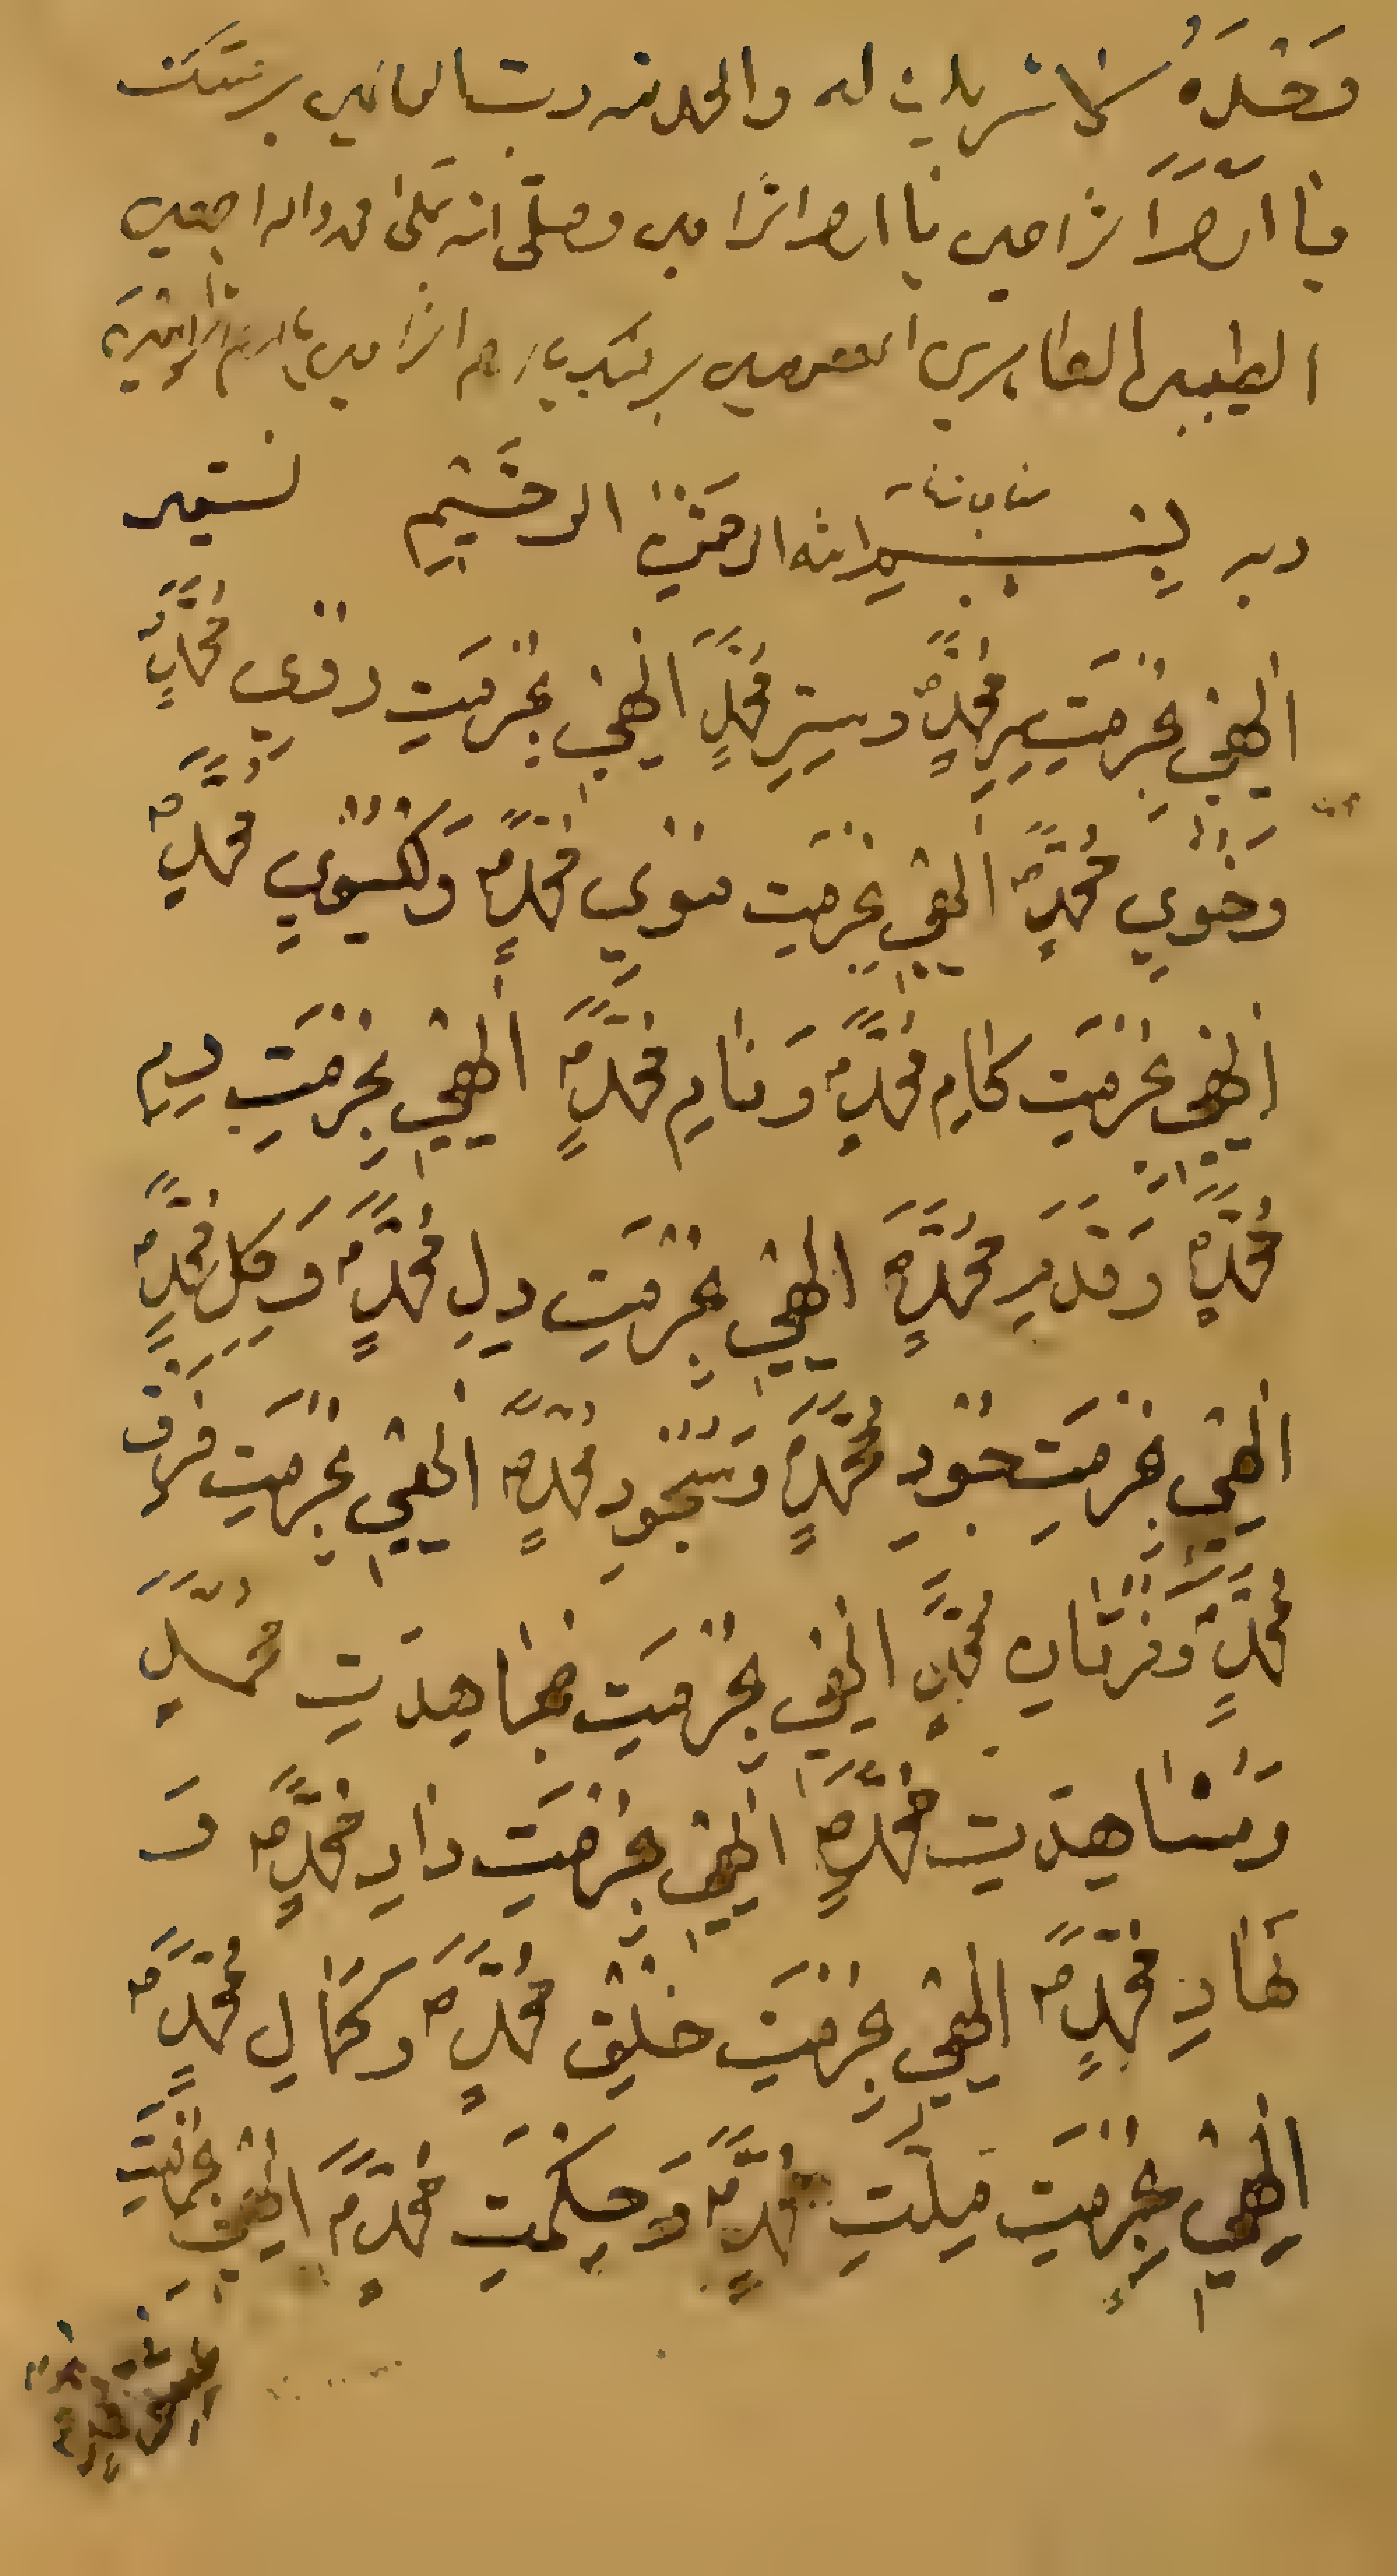 وَحْدَهُ لا شريك له والحمد لله رب العالمين برحمتك
يا ارحم الراحمين يا ارحم الراحمين وصلى الله على محمد واله اجمعين
الطيبين الطاهرين المعصومين برحمتك يا ارحم الراحمين
مناجات
وبه بِسْمِ الله الرحمن الرحيم نستعين
الٰهي بحُرمَتِ سِرِ مُحمّدٍ وسِيَرِ مُحمّدٍ الٰهي بحُرمَتِ روي مُحمّدٍ
وَخوي مُحمّدٍ الٰهي بحُرمَتِ موي مُحمّدٍ وَكيسوي مُحمّدٍ
الٰهي بحُرمَتِ كامِ مُحمّدٍ وَنامِ مُحمّدٍ الٰهي بحُرمَتِ دمِ
مُحمّدٍ وَقدمِ مُحمّدٍ الٰهي بحُرمَتِ دِلِ مُحمّدٍ وَكِلِ مُحمّدٍ
الٰهي بحُرمَتِ جُودِ مُحمّدٍ وَسُجُودِ مُحمّدٍ الٰهي بحُرمَتِ فرق
مُحمّدٍ وَفرمان مُحمّدٍ الٰهي بحُرمَتِ مجاهدَتِ مُحمّدٍ
وَمُشاهدَتِ مُحمّدٍ الٰهي بحُرمَتِ زادِ مُحمّدٍ وَ
نهادِ مُحمّدٍ الٰهي بحُرمَتِ خلقِ مُحمّدٍ وكمالِ مُحمّدٍ
الٰهي بحُرمَتِ مِلّتِ مُحمّدٍ وَحِكمَتِ مُحمّدٍ الٰهي بحرمتِ